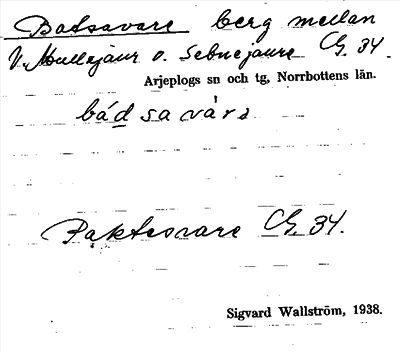 Batsavare berg mellan
V. Mullejaur o. Sebnejaure G. 34.
Arjeplogs sn och tg, Norrbottens län.
bádsavárɜ
Paktesvare G. 34.
Sigvard Wallström, 1938.